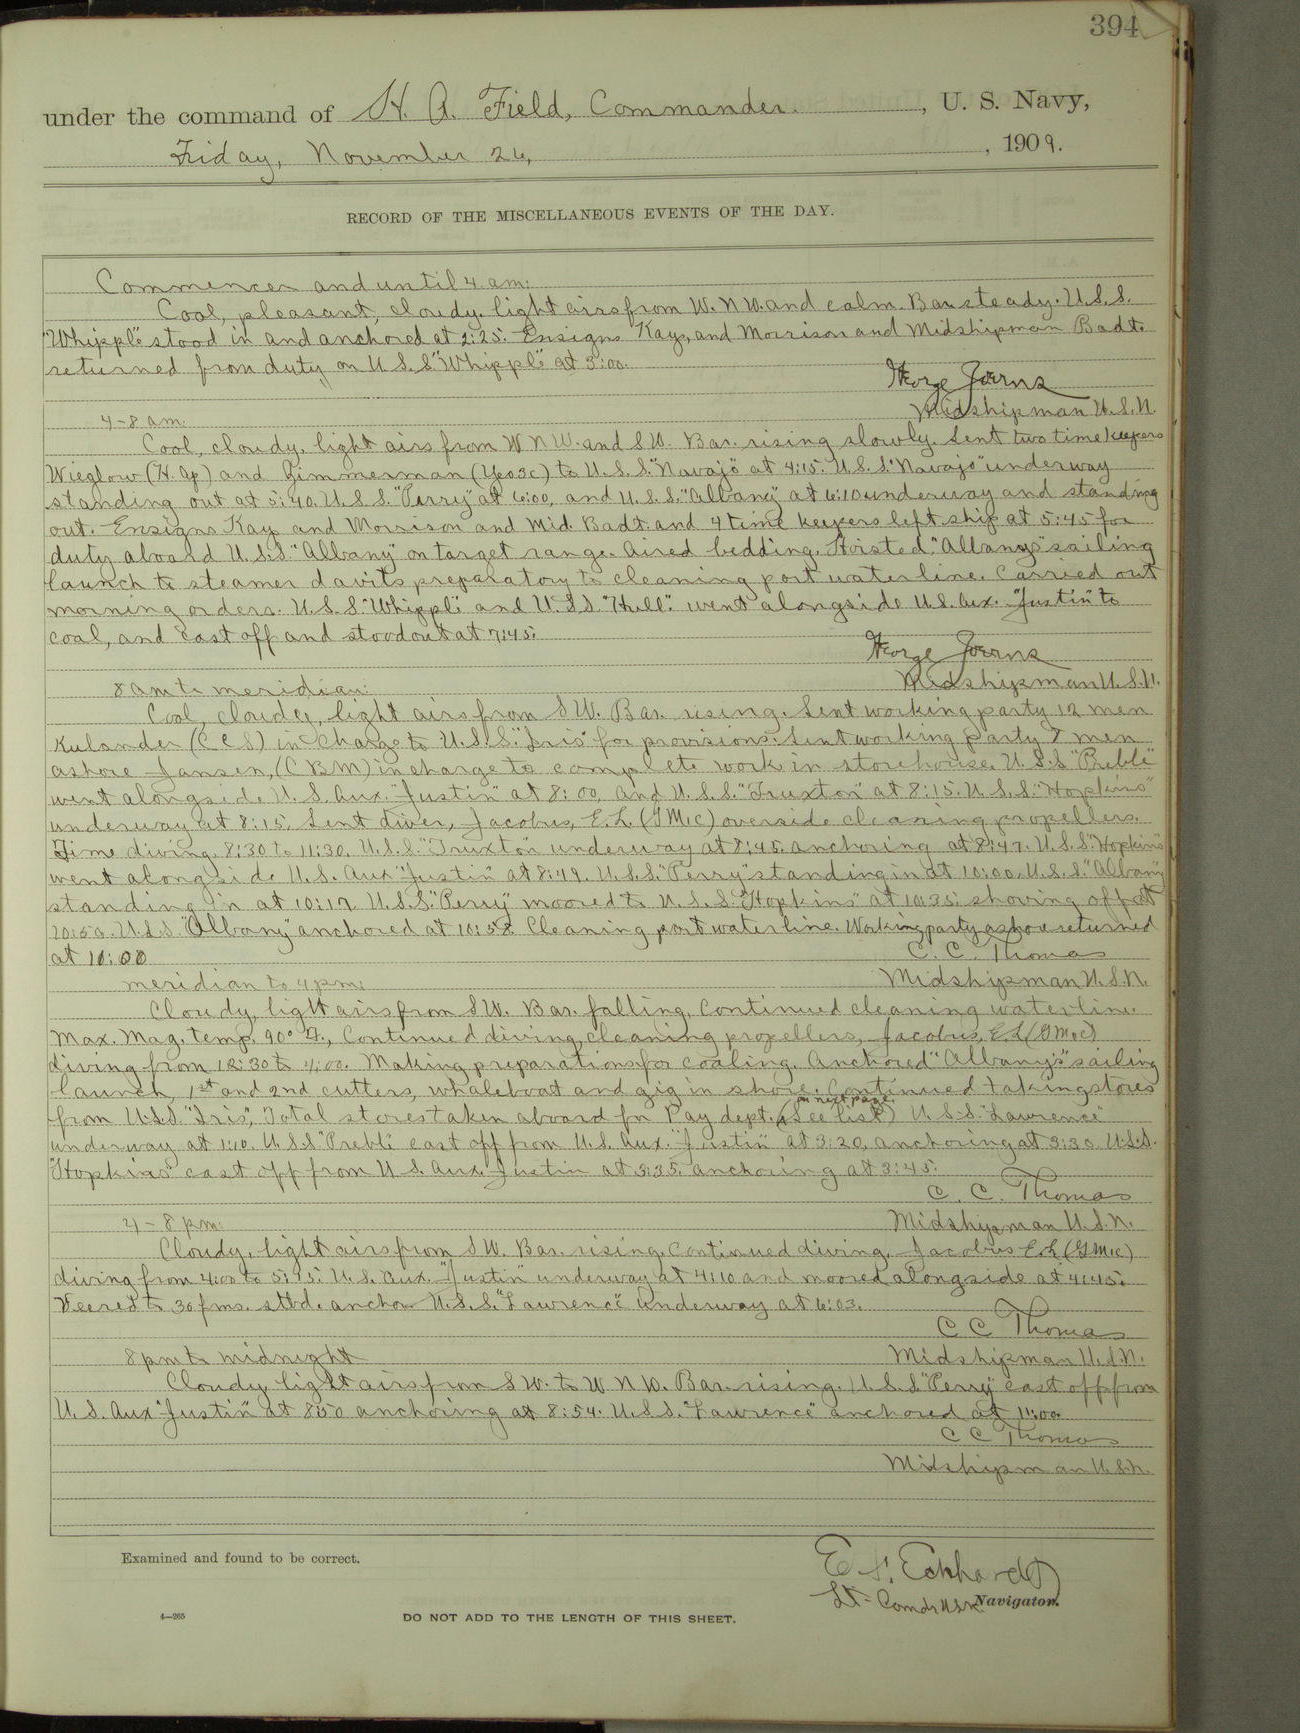 394
under the command of H. A. Field, Commander. , U. S. Navy,
Friday, November 26, , 1909.
RECORD OF THE MISCELLANEOUS EVENTS OF THE DAY.
Commences and until 4 am:
Cool, pleasant, cloudy, light airs from W. N W. and calm. Bar steady. U.S.S.
"Whipple" stood in and anchored at 2:25. Ensigns Kays, and Morrison and Midshipman Badt.
returned from duty on U.S.S. "Whipple" at 3:00.
George Joerns
Midshipman U.S.N.
4-8 am.
Cool, cloudy, light airs from W N W. and S.W. Bar. rising slowly. Sent two time keepers
Wieglow (H. Ap) and Zimmerman (Yeo 3c) to U.S.S. "Navajo" at 4:15. U.S.S. "Navajo" underway
standing out at 5:40. U.S.S. "Perry" at 6:00, and U.S.S. "Albany" at 6:10 underway and standing
out. Ensigns Kay and Morrison and Mid. Badt. and 4 time keepers left ship at 5:45 for
duty aboard U.S.S. "Albany" on target range. Aired bedding. Hoisted "Albany's" sailing
launch to steamer davits preparatory to cleaning port waterline. Carried out
morning orders. U.S.S. "Whipple" and U.S.S. "Hull" went alongside U.S. Aux. "Justin" to
coal, and cast off and stood out at 7:45.
George Joerns
Midshipman U.S.N.
8 am to meridian:
Cool, cloudy, light airs from S W. Bar. rising. Sent working party 12 men
Kulander (C C S) in charge to U.S.S. "Iris" for provisions. Sent working party 7 men
ashore Jansen, (C B M) in charge to complete work in storehouse. U.S.S. "Preble"
went alongside U.S. Aux. "Justin" at 8:00, and U.S.S. "Truxton" at 8:15. U.S.S. "Hopkins"
underway at 8:15. Sent diver, Jacobus, E.L. (G M 1 c) overside cleaning propellers.
Time diving 8:30 to 11:30. U.S.S. "Truxton" underway at 8:45, anchoring at 8:47. U.S.S. "Hopkins"
went alongside U.S. Aux "Justin" at 8:49. U.S.S. "Perry" standing in at 10:00. U.S.S. "Albany"
standing in at 10:17. U.S.S. "Perry" moored to U.S.S. "Hopkins" at 10:35. shoving off at
10:50. U.S.S. "Albany" anchored at 10:52. Cleaning port waterline. Working party ashore returned
at 11:00
C. C. Thomas
Midshipman U.S.N.
meridian to 4 pm:
Cloudy, light airs from S W. Bar. falling. Continued cleaning waterline.
Max. Mag. temp. 90° F., Continued diving, cleaning propellers, Jacobus, E.L (G M 1 c)
diving from 12:30 to 4:00. Making preparations for coaling. Anchored "Albany's" sailing
launch, 1st and 2nd cutters, whaleboat and gig in shore. Continued taking stores
from U.S.S. "Iris", Total stores taken aboard for Pay dept. (See list on next page) U.S.S. "Lawrence"
underway at 1:10. U.S.S. "Preble" cast off from U.S. Aux. "Justin" at 3:20, anchoring at 3:30. U.S.S.
"Hopkins" cast off from U.S. Aux. Justin at 3:35. anchoring at 3:45.
C. C. Thomas
Midshipman U.S.N.
4 - 8 pm:
Cloudy, light airs from S W. Bar. rising. Continued diving. Jacobus E.L (G M 1 c)
diving from 4:00 to 5:15. U.S. Aux. "Justin" underway at 4:10 and moored alongside at 4:45.
Veered to 30 fms. stbd. anchor U.S.S. "Lawrence" underway at 6:03.
C C Thomas
Midshipman U.S.N.
8 pm to midnight
Cloudy light airs from S W. to W N W. Bar. rising. U.S.S. "Perry" cast off from
U.S. Aux "Justin" at 8:50 anchoring at 8:54. U.S.S. "Lawrence" anchored at 11:00.
C C Thomas
Midshipman U.S.N.
Examined and found to be correct.
E. S. Eckhardt
Lt-Comdr USN. Navigator.
4—265
DO NOT ADD TO THE LENGTH OF THIS SHEET.